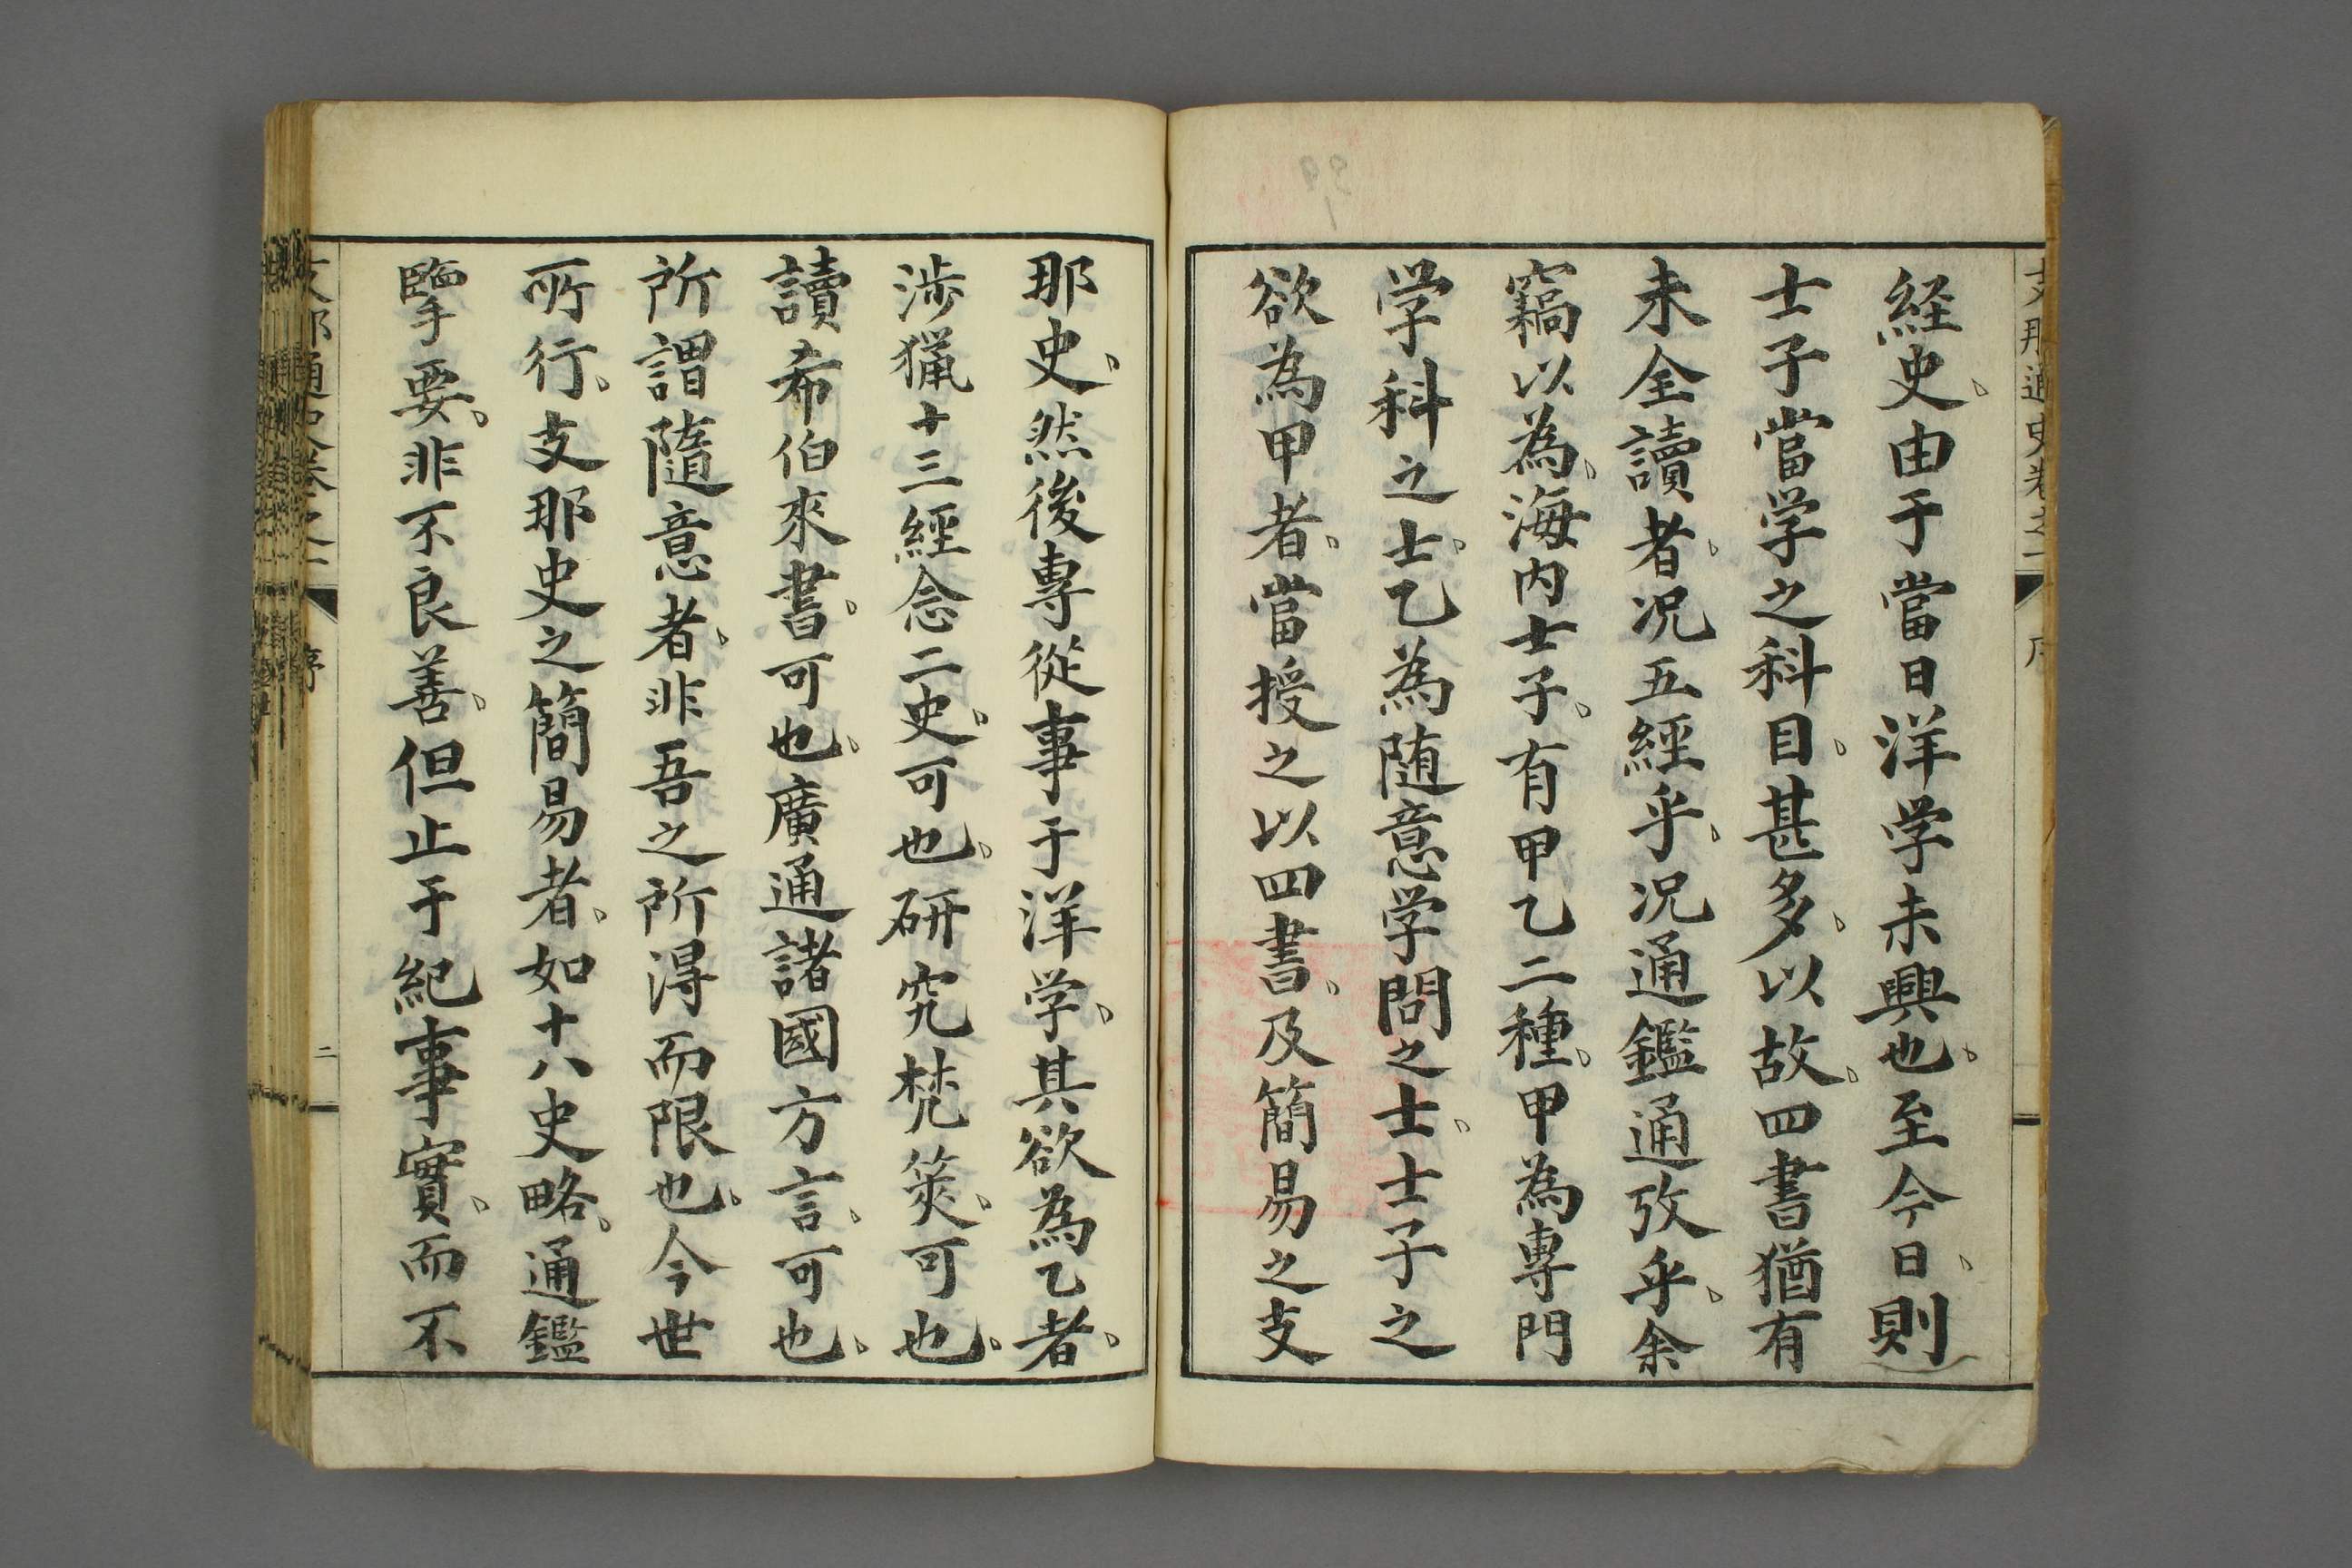 経史由于當日洋学未興也至今日則
士子當学之科目甚多以故四書猶有
未全讀者況五經乎況通鑑通攷乎余
竊以為海内士子有甲乙二種甲為專門
学科之士乙為随意学問之士士子之
欲為甲者當授之以四書及簡易之支
那史然後專從事于洋学其欲為乙者
渉獵十三經念二史可也研究梵筴可也
讀希伯來書可也廣通諸國方言可也
所謂隨意者非吾之所得而限也今世
所行支那史之簡易者如十八史略通鑑
擥要非不良善但止于紀事實而不
序
二